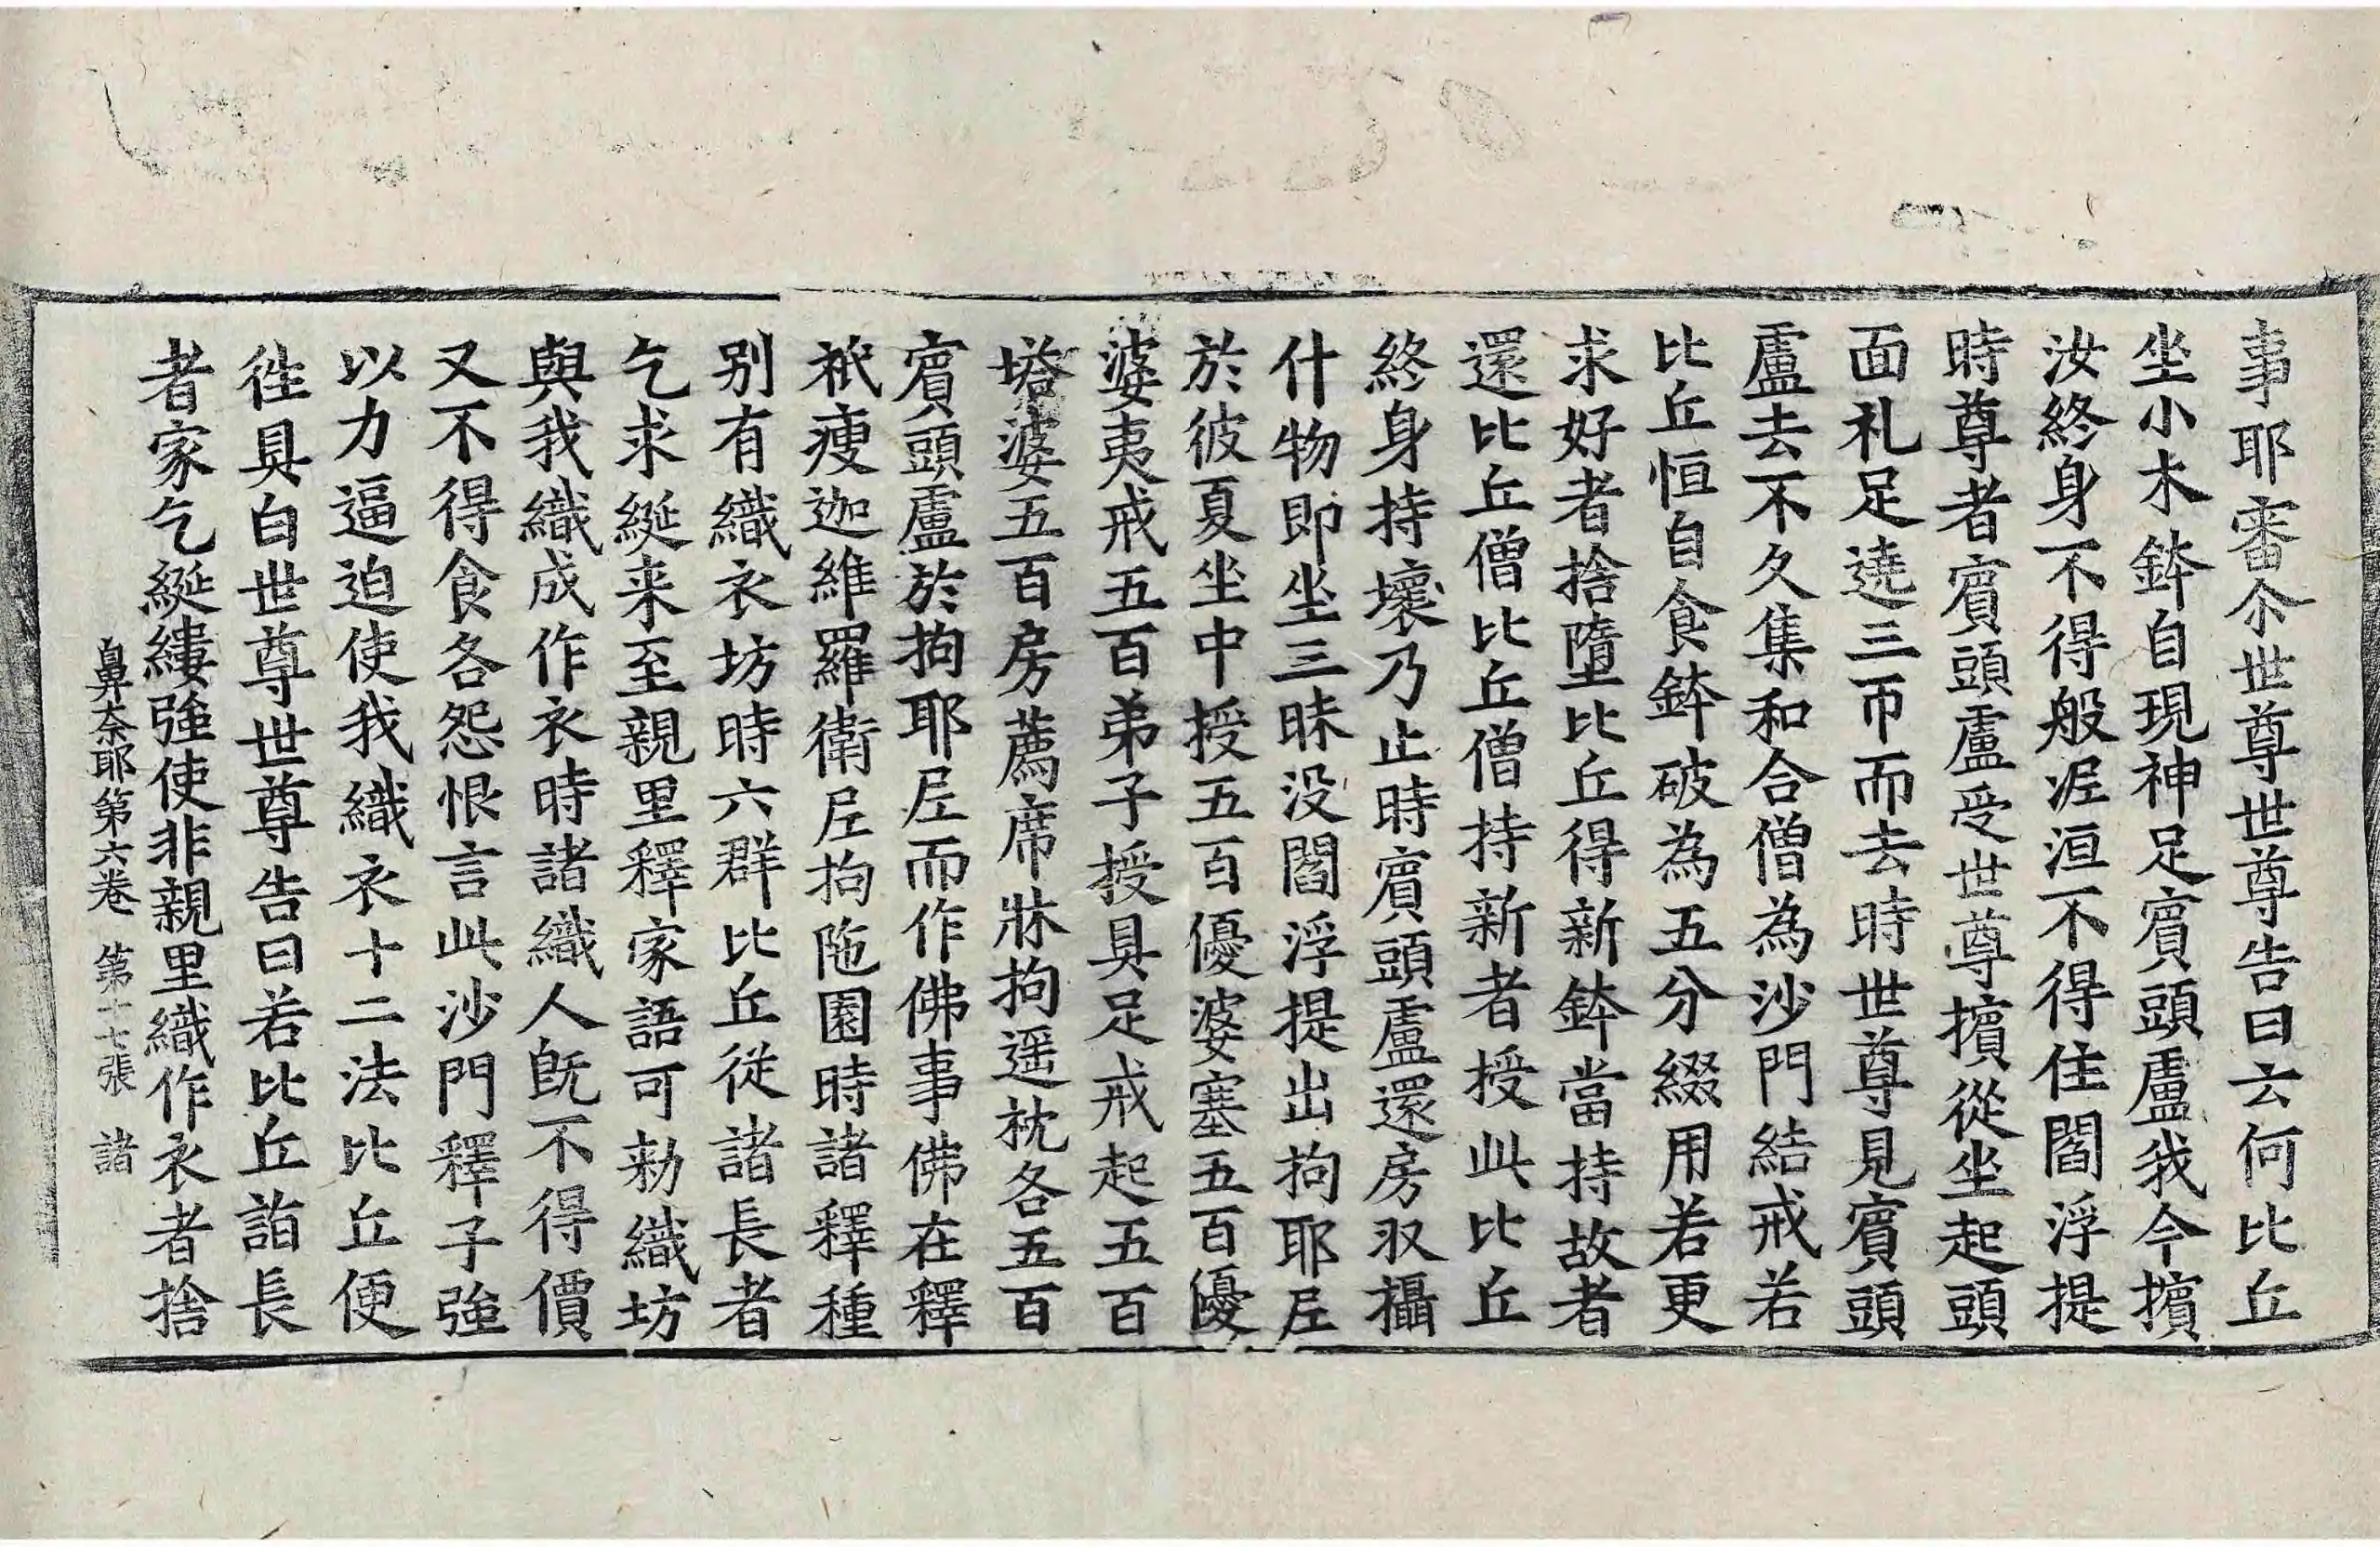 事耶審尒世尊世尊告曰云何比丘
坐小木鉢自現神足賓頭盧我今擯
汝終身不得般涅洹不得住閻浮提
時尊者賓頭盧受世尊擯從坐起頭
面礼足遶三帀而去時世尊見賓頭
盧去不久集和合僧為沙門結戒若
比丘恒自食鉢破為五分綴用若更
求好者捨墮比丘得新鉢當持故者
還比丘僧比丘僧持新者授此比丘
終身持壞乃止時賓頭盧還房収攝
什物即坐三昧没閻浮提出拘耶尼
於彼夏坐中授五百優婆塞五百優
婆夷戒五百弟子授具足戒起五百
塔婆五百房薦席牀拘遥枕各五百
賓頭盧於拘耶尼而作佛事佛在釋
衹瘦迦維羅衛尼拘陁園時諸釋種
别有織衣坊時六群比丘從諸長者
乞求綖来至親里釋家語可勑織坊
與我織成作衣時諸織人旣不得價
又不得食各怨恨言此沙門釋子強
以力逼迫使我織衣十二法比丘便
徃具白世尊世尊告曰若比丘詣長
者家乞綖縷強使非親里織作衣者捨
鼻奈耶第六卷　第十七張　諸